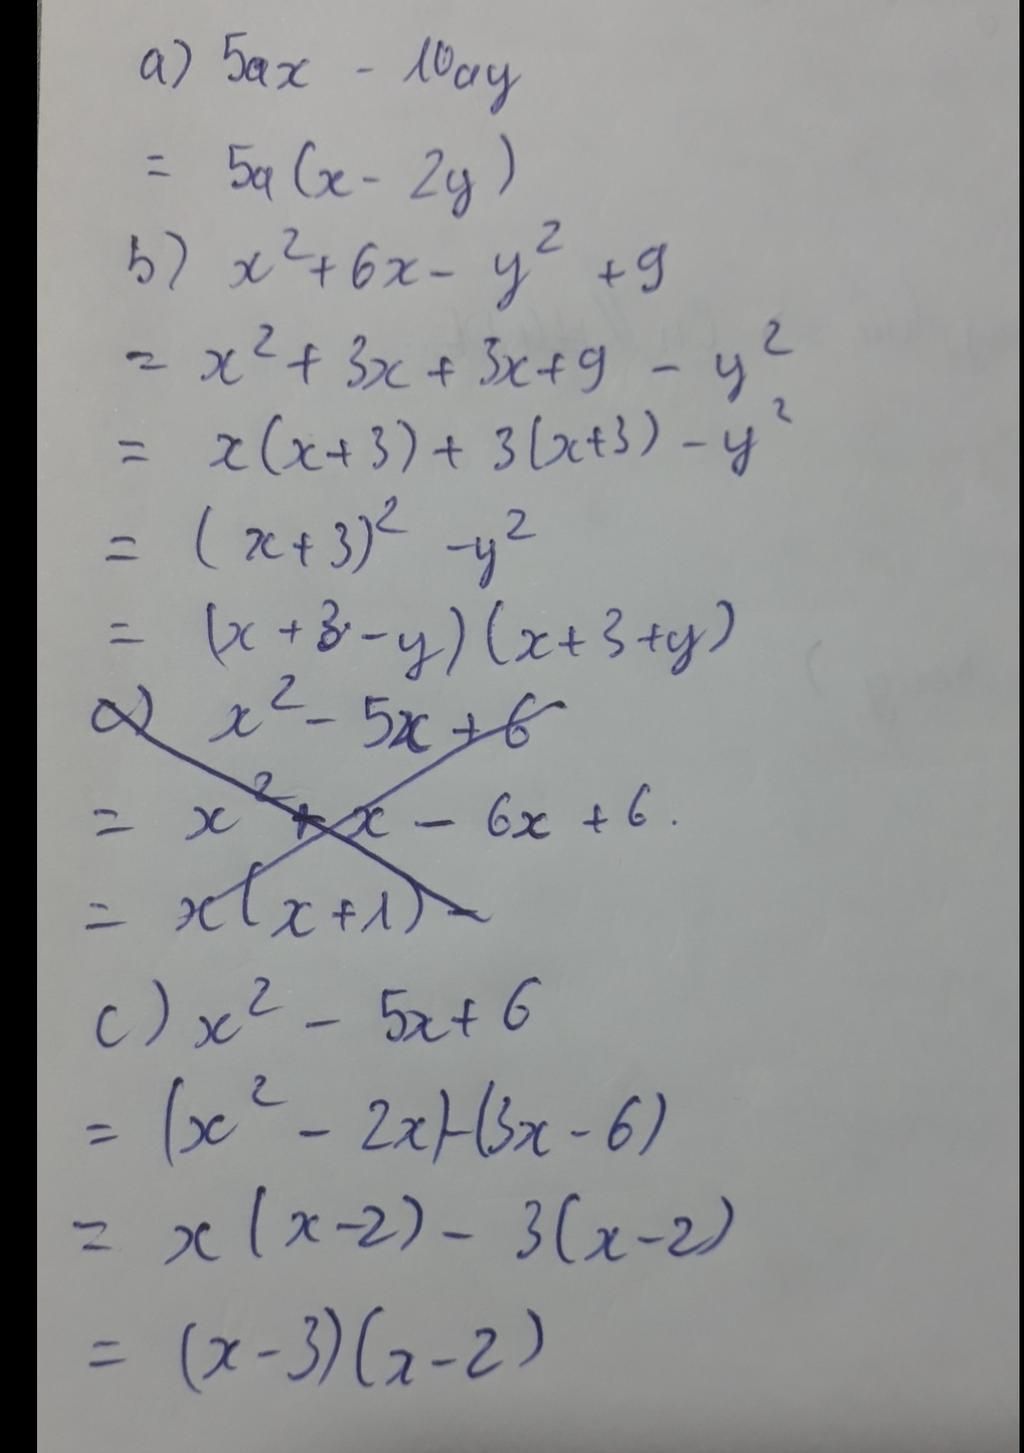 a) 5ax - 10ay
= 5a(x - 2y)
b) x² + 6x - y² + 9
= x² + 3x + 3x + 9 - y²
= x(x+3) + 3(x+3) - y²
= (x+3)² - y²
= (x + 3 - y)(x + 3 + y)
c) x² - 5x + 6
= x² + x - 6x + 6.
= x(x+1) -
c) x² - 5x + 6
= (x² - 2x) - (3x - 6)
= x(x-2) - 3(x-2)
= (x-3)(x-2)